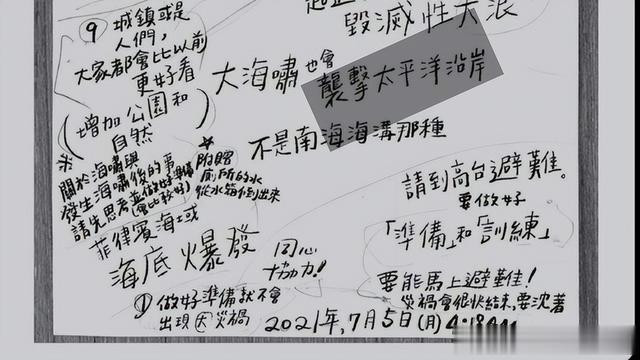 ⑨ 城鎮或是
人們，
大家都會比以前
更好看
(增加公園和
自然)
毀滅性大浪
大海嘯也會
襲擊太平洋沿岸
不是南海海溝那種
※
關於海嘯與
發生海嘯後的事
請先思考並做好準備
(會比較好)
☆
附贈
廁所的水
從水箱倒出來
請到高台避難。
要做好
「準備」和「訓練」
菲律賓海域
海底爆發
同心
協力!
① 做好準備就不會
出現因災禍
要能馬上避難!
災禍會很快結束,要沈著
2021年,7月5日(月) 4:18AM